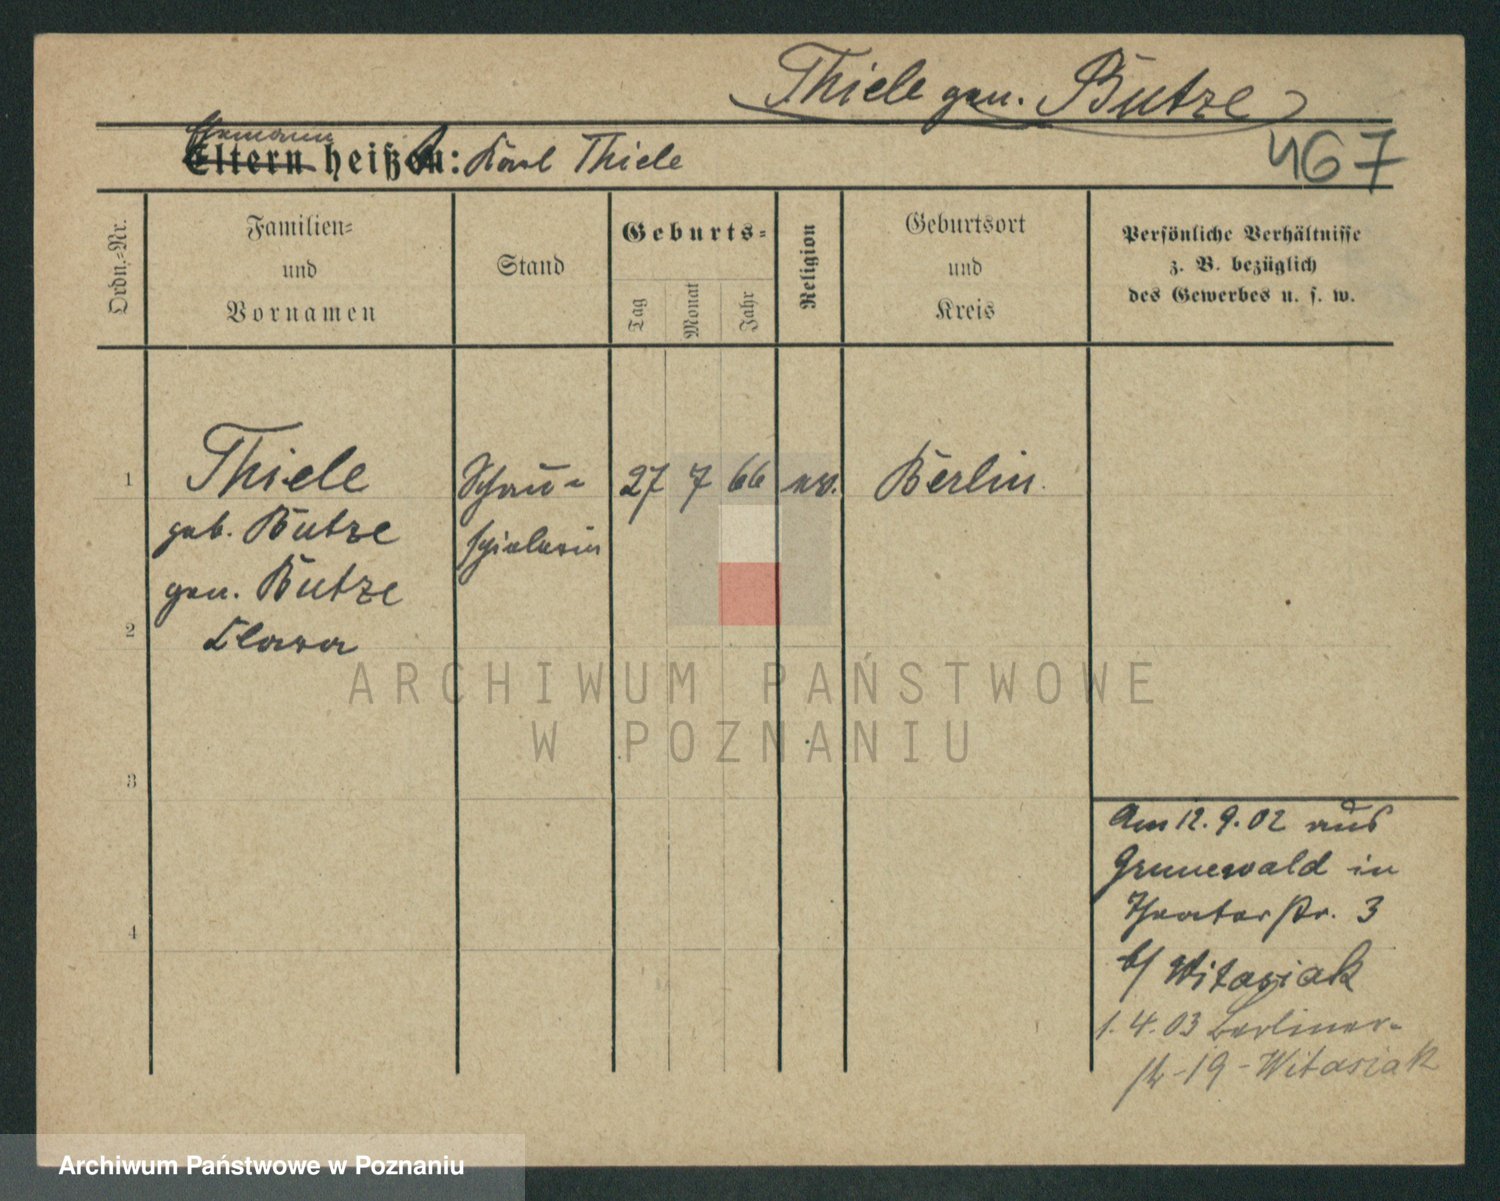 Thiele gen. Butze
467
Ehemann
Eltern heißt: Karl Thiele
Ordn.-Nr.
Familien-
und
Vornamen
Stand
Geburts-
Tag
Monat
Jahr
Religion
Geburtsort
und
Kreis
Persönliche Verhältnisse
z. B. bezüglich
des Gewerbes u. s. w.
1
Thiele
Schau-
27 7 66 ev.
Berlin.
geb. Butze
spielerin
gen. Butze
2
Clara
3
4
Am 12. 9. 02 aus
Grunewald in
Theaterstr. 3
b/ Witasiak
1. 4. 03 Berliner-
str - 19 - Witasiak
ARCHIWUM PAŃSTWOWE
W POZNANIU
Archiwum Państwowe w Poznaniu